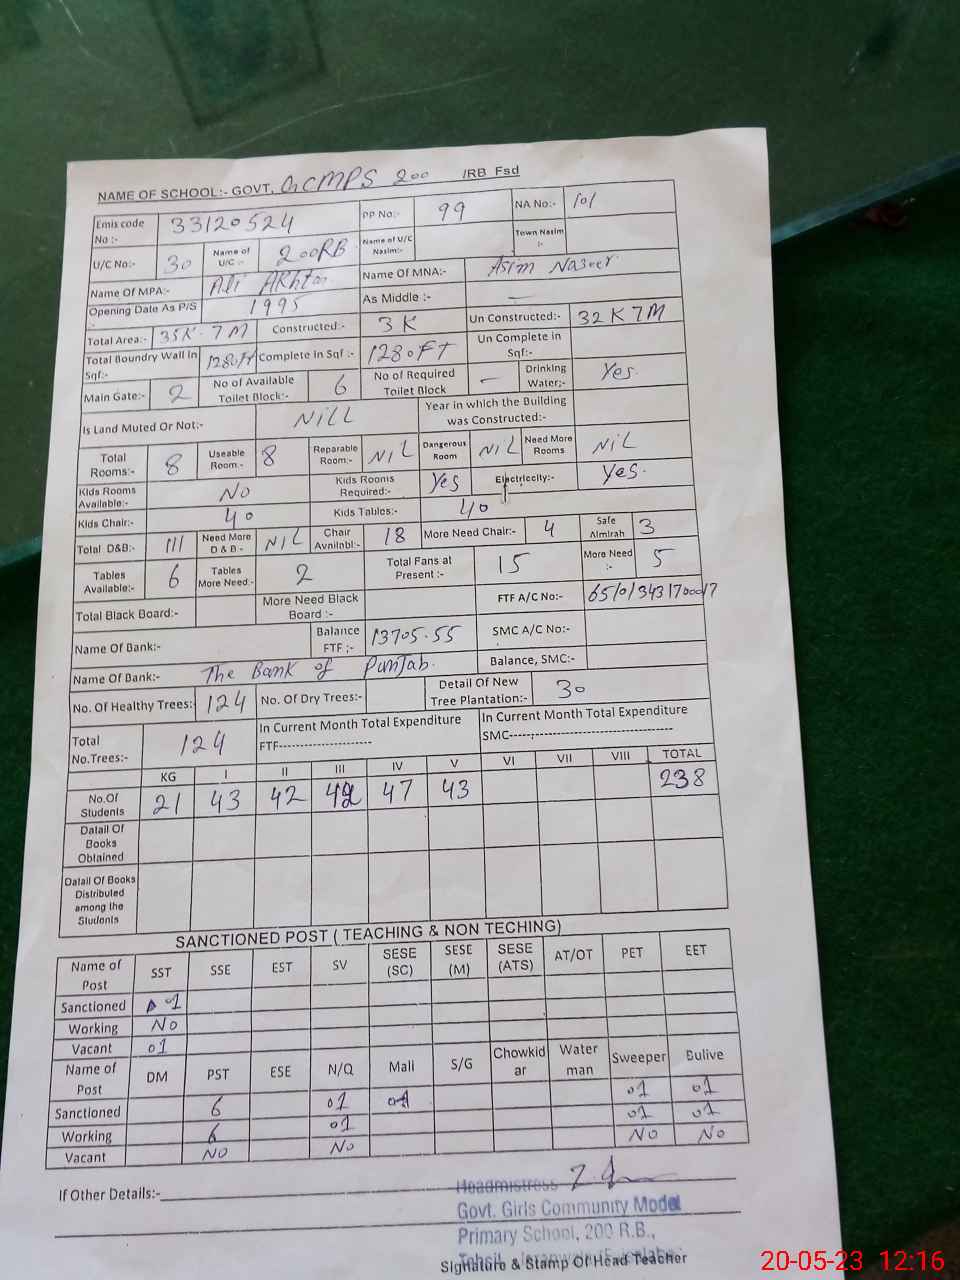 NAME OF SCHOOL:- GOVT. GCMPS 200 /RB Fsd
Emis code No :- 33120524 PP No:- 99 NA No:- 101
U/C No:- 30 Name of U/C :- 200RB Name of U/C Nasim:- Town Nasim :-
Name Of MPA:- Ali Akhtar Name Of MNA:- Asim Nazeer
Opening Date As P/S :- 1995 As Middle :- —
Total Area:- 35K-7M Constructed:- 3K Un Constructed:- 32K7M
Total Boundry Wall In Sqf:- 1280ft Complete In Sqf :- 1280FT Un Complete in Sqf:-
Main Gate:- 2 No of Available Toilet Block:- 6 No of Required Toilet Block — Drinking Water;- Yes
Is Land Muted Or Not:- NILL Year in which the Building was Constructed:-
Total Rooms:- 8 Useable Room:- 8 Reparable Room:- NIL Dangerous Room NIL Need More Rooms NIL
Kids Rooms Available:- No Kids Rooms Required:- Yes Electricity:- Yes.
Kids Chair:- 40 Kids Tables:- 40
Total D&B:- 111 Need More D & B - NIL Chair Availabl:- 18 More Need Chair:- 4 Safe Almirah 3
Tables Available:- 6 Tables More Need:- 2 Total Fans at Present :- 15 More Need :- 5
Total Black Board:- More Need Black Board :- FTF A/C No:-
Name Of Bank:- Balance FTF ;- 13705.55 SMC A/C No:-
Name Of Bank:- The Bank of Punjab. Balance, SMC:-
No. Of Healthy Trees: 124 No. Of Dry Trees:- Detail Of New Tree Plantation:- 30
Total No.Trees:- 124 In Current Month Total Expenditure FTF---------------------- In Current Month Total Expenditure SMC-----;-------------------------------
KG I II III IV V VI VII VIII TOTAL
No.Of Students 21 43 42 42 47 43 238
Datail Of Books Obtained
Datail Of Books Distributed among the Students
SANCTIONED POST ( TEACHING & NON TECHING)
Name of Post SST SSE EST SV SESE (SC) SESE (M) SESE (ATS) AT/OT PET EET
Sanctioned 01
Working No
Vacant 01
Name of Post DM PST ESE N/Q Mali S/G Chowkidar Water man Sweeper Bulive
Sanctioned 6 01 01 01 01
Working 6 01 01 01
Vacant No No No No
If Other Details:-
Headmistress
Govt. Girls Community Model
Primary School, 200 R.B.,
Signature & Stamp Of Head Teacher
20-05-23 12:16